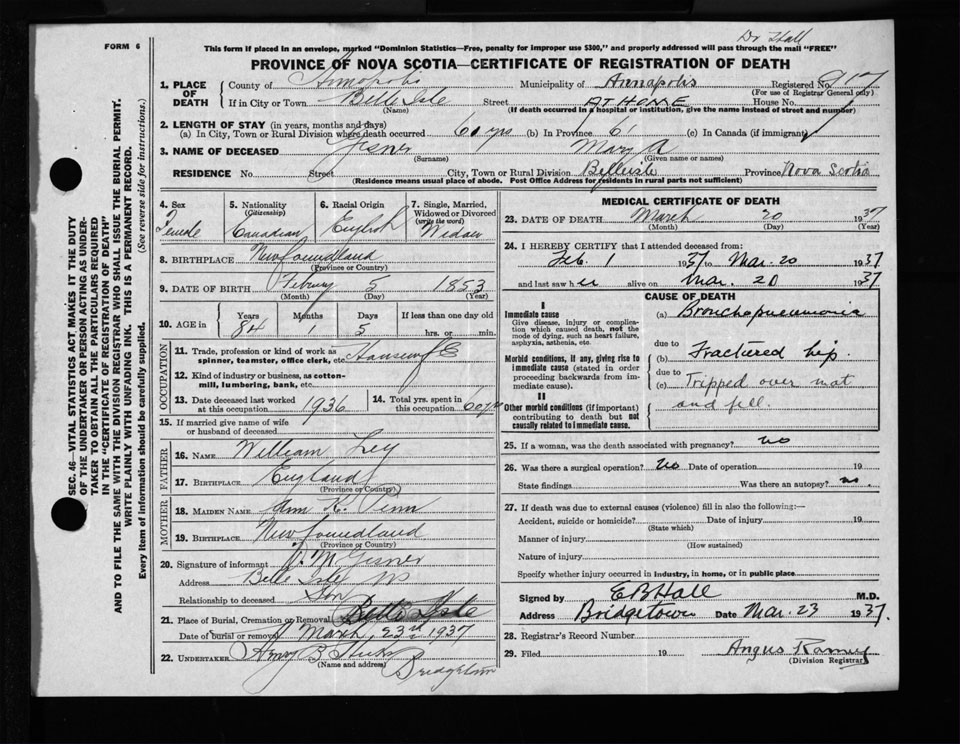 Dr Hall
FORM 6
This form if placed in an envelope, marked "Dominion Statistics—Free, penalty for improper use $300," and properly addressed will pass through the mail "FREE"
PROVINCE OF NOVA SCOTIA—CERTIFICATE OF REGISTRATION OF DEATH
1. PLACE OF DEATH
County of Annapolis Municipality of Annapolis Registered No.
(For use of Registrar General only)
If in City or Town Belle Isle Street AT HOME House No.
(Name) (If death occurred in a hospital or institution, give the name instead of street and number)
2. LENGTH OF STAY (in years, months and days)
(a) In City, Town or Rural Division where death occurred 60 yrs (b) In Province 6 (c) In Canada (if immigrant)
3. NAME OF DECEASED Gesner Mary A
(Surname) (Given name or names)
RESIDENCE No. Street City, Town or Rural Division Belleisle Province Nova Scotia
(Residence means usual place of abode. Post Office Address for residents in rural parts not sufficient)
4. Sex Female
5. Nationality (Citizenship) Canadian
6. Racial Origin English
7. Single, Married, Widowed or Divorced (write the word) Widow
8. BIRTHPLACE Newfoundland
(Province or Country)
9. DATE OF BIRTH 5 1853
(Month) (Day) (Year)
10. AGE in Years Months Days If less than one day old
84 1 5 hrs. or min.
OCCUPATION
11. Trade, profession or kind of work as spinner, teamster, office clerk, etc. Housewife
12. Kind of industry or business, as cotton-mill, lumbering, bank, etc.
13. Date deceased last worked at this occupation 1936
14. Total yrs. spent in this occupation 60 yrs
15. If married give name of wife or husband of deceased
FATHER
16. NAME William
17. BIRTHPLACE England
(Province or Country)
MOTHER
18. MAIDEN NAME Ann K. Penn
19. BIRTHPLACE Newfoundland
(Province or Country)
20. Signature of informant Gesner
Address Belle Isle NS
Relationship to deceased Son
21. Place of Burial, Cremation or Removal Belle Isle
Date of burial or removal March 23rd 1937
22. UNDERTAKER B
(Name and address)
MEDICAL CERTIFICATE OF DEATH
23. DATE OF DEATH March 20 1937
(Month) (Day) (Year)
24. I HEREBY CERTIFY that I attended deceased from:
Feb. 1 1937 to Mar. 20 1937
and last saw her alive on Mar. 20 1937
CAUSE OF DEATH
I
Immediate cause
Give disease, injury or complication which caused death, not the mode of dying, such as heart failure, asphyxia, asthenia, etc.
(a) Bronchopneumonia
due to
Morbid conditions, if any, giving rise to immediate cause (stated in order proceeding backwards from immediate cause).
(b) Fractured hip.
due to
(c) Tripped over mat
and fell.
II
Other morbid conditions (if important) contributing to death but not causally related to immediate cause.
25. If a woman, was the death associated with pregnancy? no
26. Was there a surgical operation? no Date of operation 19
State findings Was there an autopsy? no.
27. If death was due to external causes (violence) fill in also the following:—
Accident, suicide or homicide? Date of injury 19
(State which)
Manner of injury
(How sustained)
Nature of injury
Specify whether injury occurred in industry, in home, or in public place
Signed by E B Hall M.D.
Address Bridgetown Date Mar. 23 1937.
28. Registrar's Record Number
29. Filed 19 Angus Ramey
(Division Registrar)
SEC. 46—VITAL STATISTICS ACT MAKES IT THE DUTY
OF THE UNDERTAKER OR PERSON ACTING AS UNDER-
TAKER TO OBTAIN ALL THE PARTICULARS REQUIRED
IN THE "CERTIFICATE OF REGISTRATION OF DEATH"
AND TO FILE THE SAME WITH THE DIVISION REGISTRAR WHO SHALL ISSUE THE BURIAL PERMIT.
WRITE PLAINLY WITH UNFADING INK. THIS IS A PERMANENT RECORD.
Every item of information should be carefully supplied. (See reverse side for instructions.)